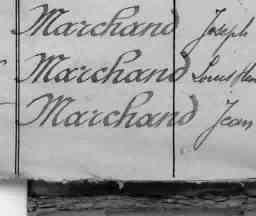 Marchand Joseph
Marchand Louis
Marchand Jean